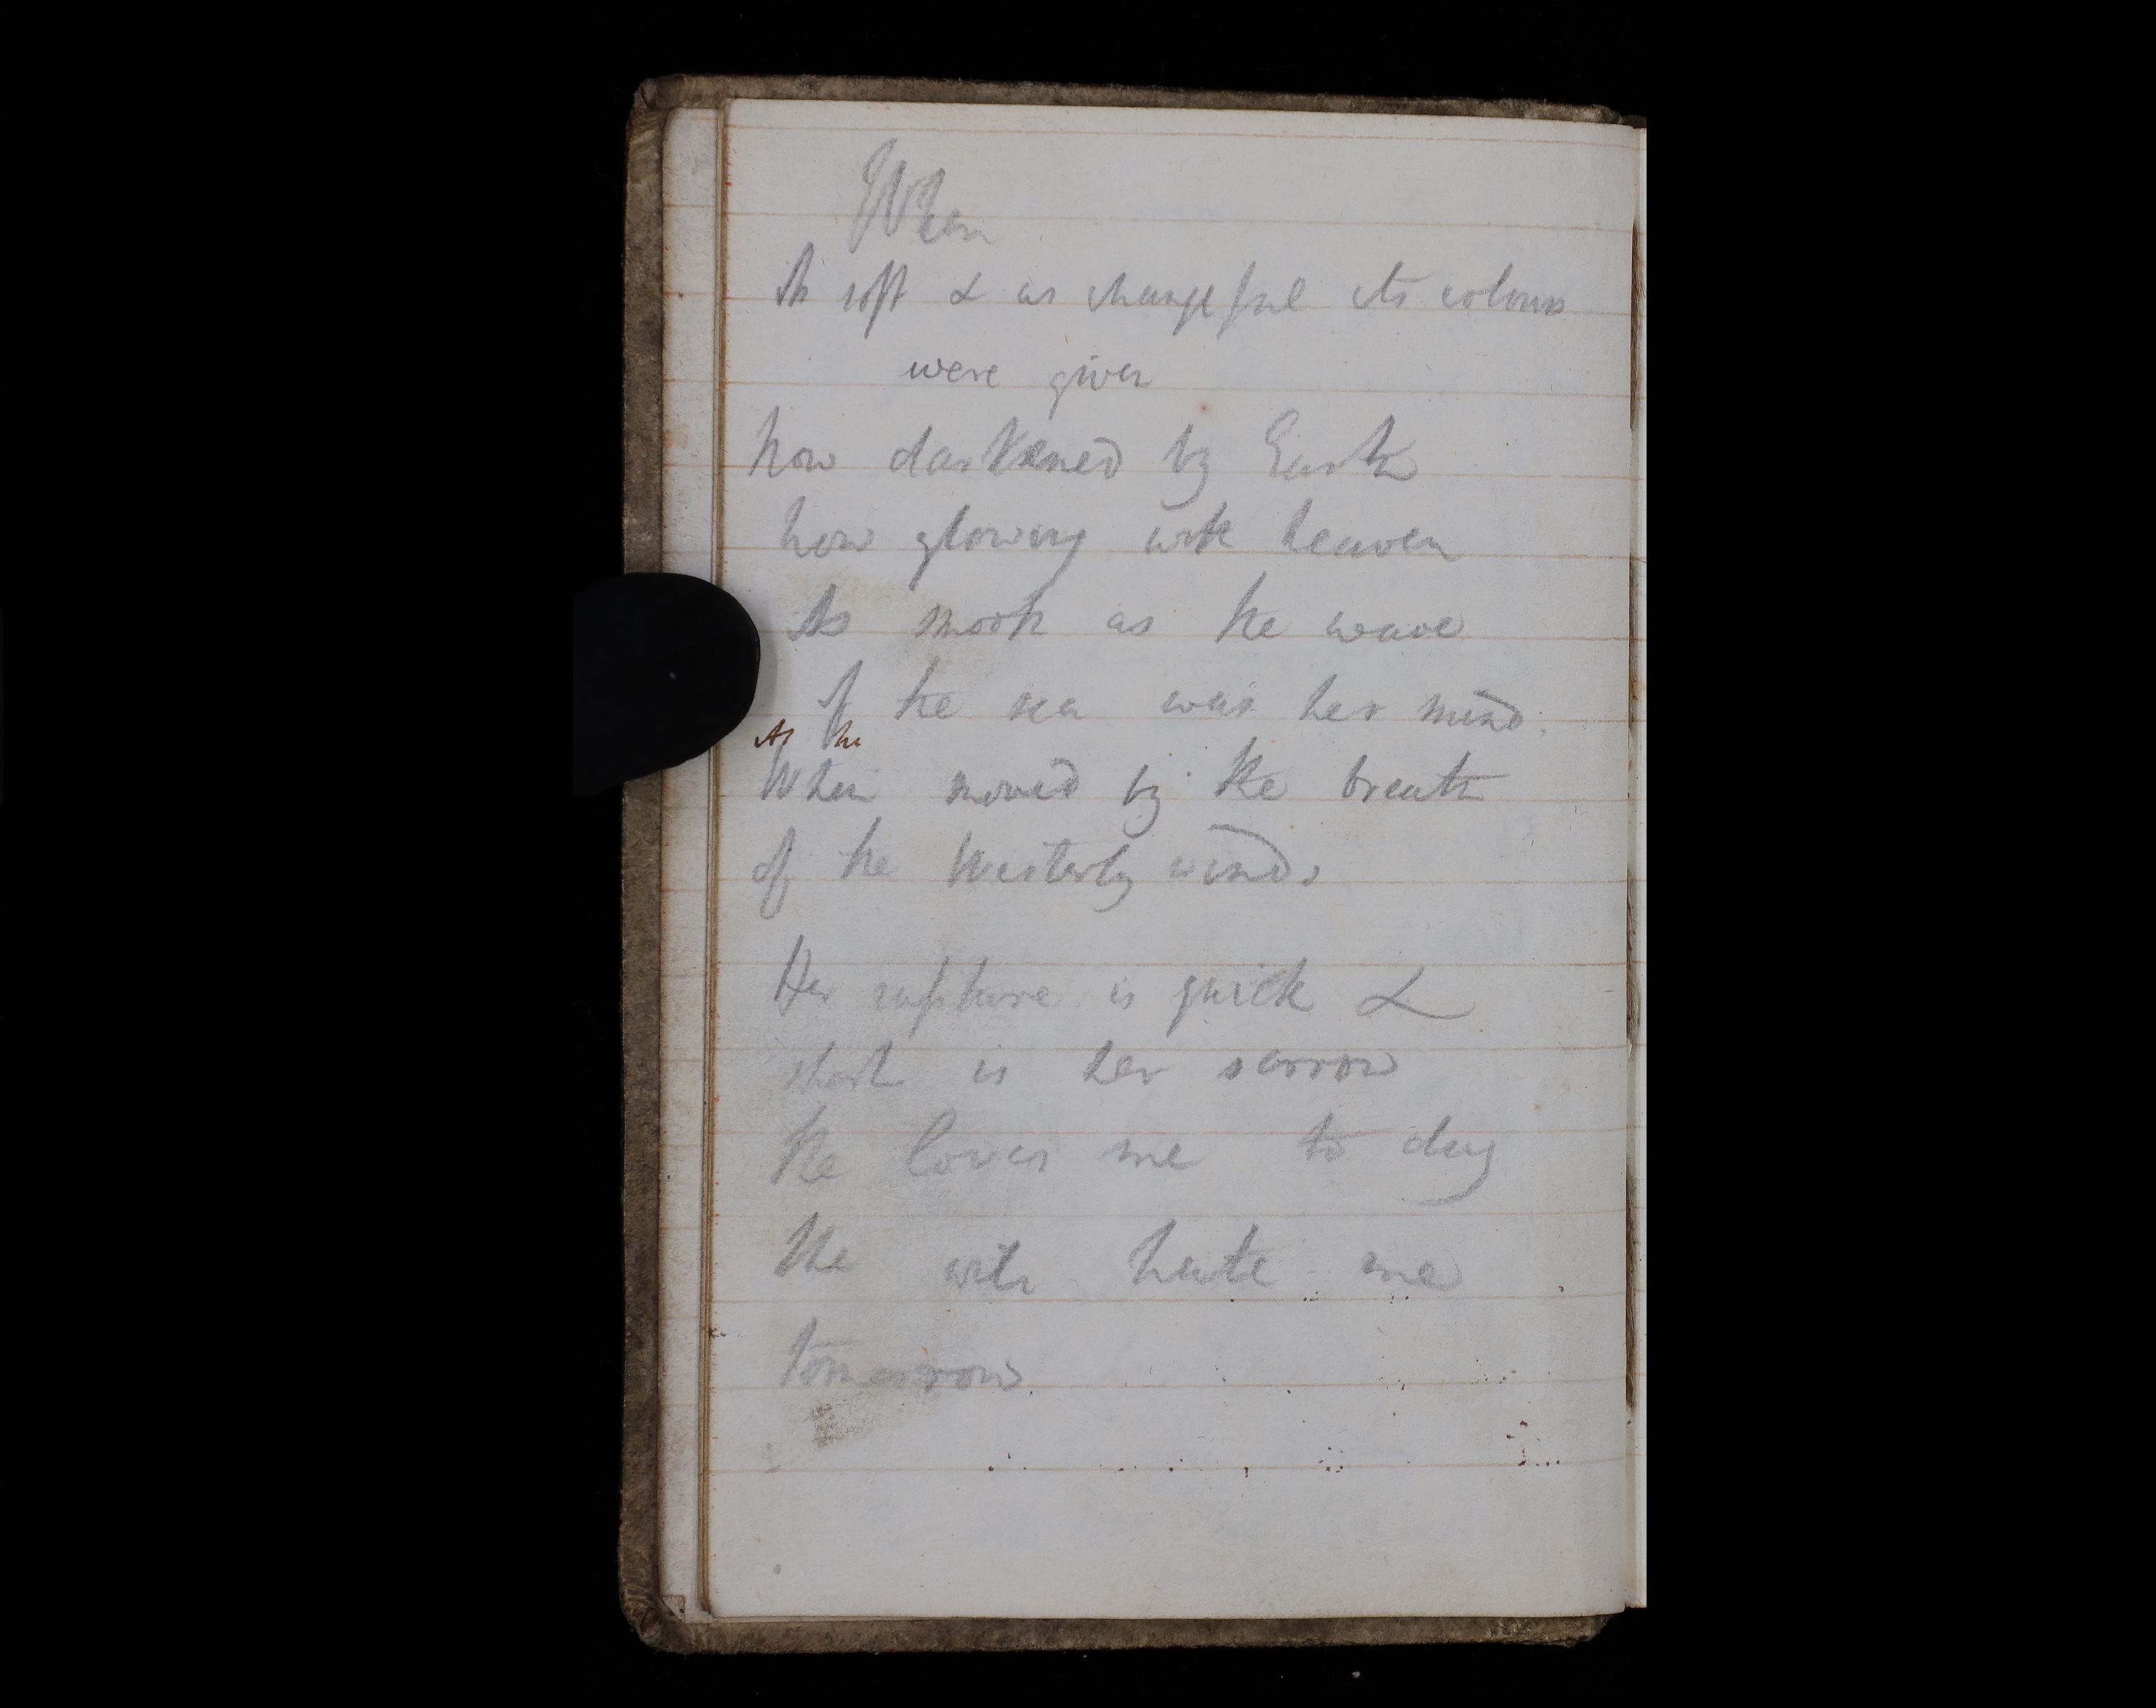 When
As soft & as changeful its colours
were given
how darkened by Earth
how glowing with heaven
As smooth as the wave
of the sea was her mind.
As the
When moved by the breath
of the Westerly wind.
Her rapture is quick &
short is her sorrow
She loves me to day
She will hate me
tomorrow